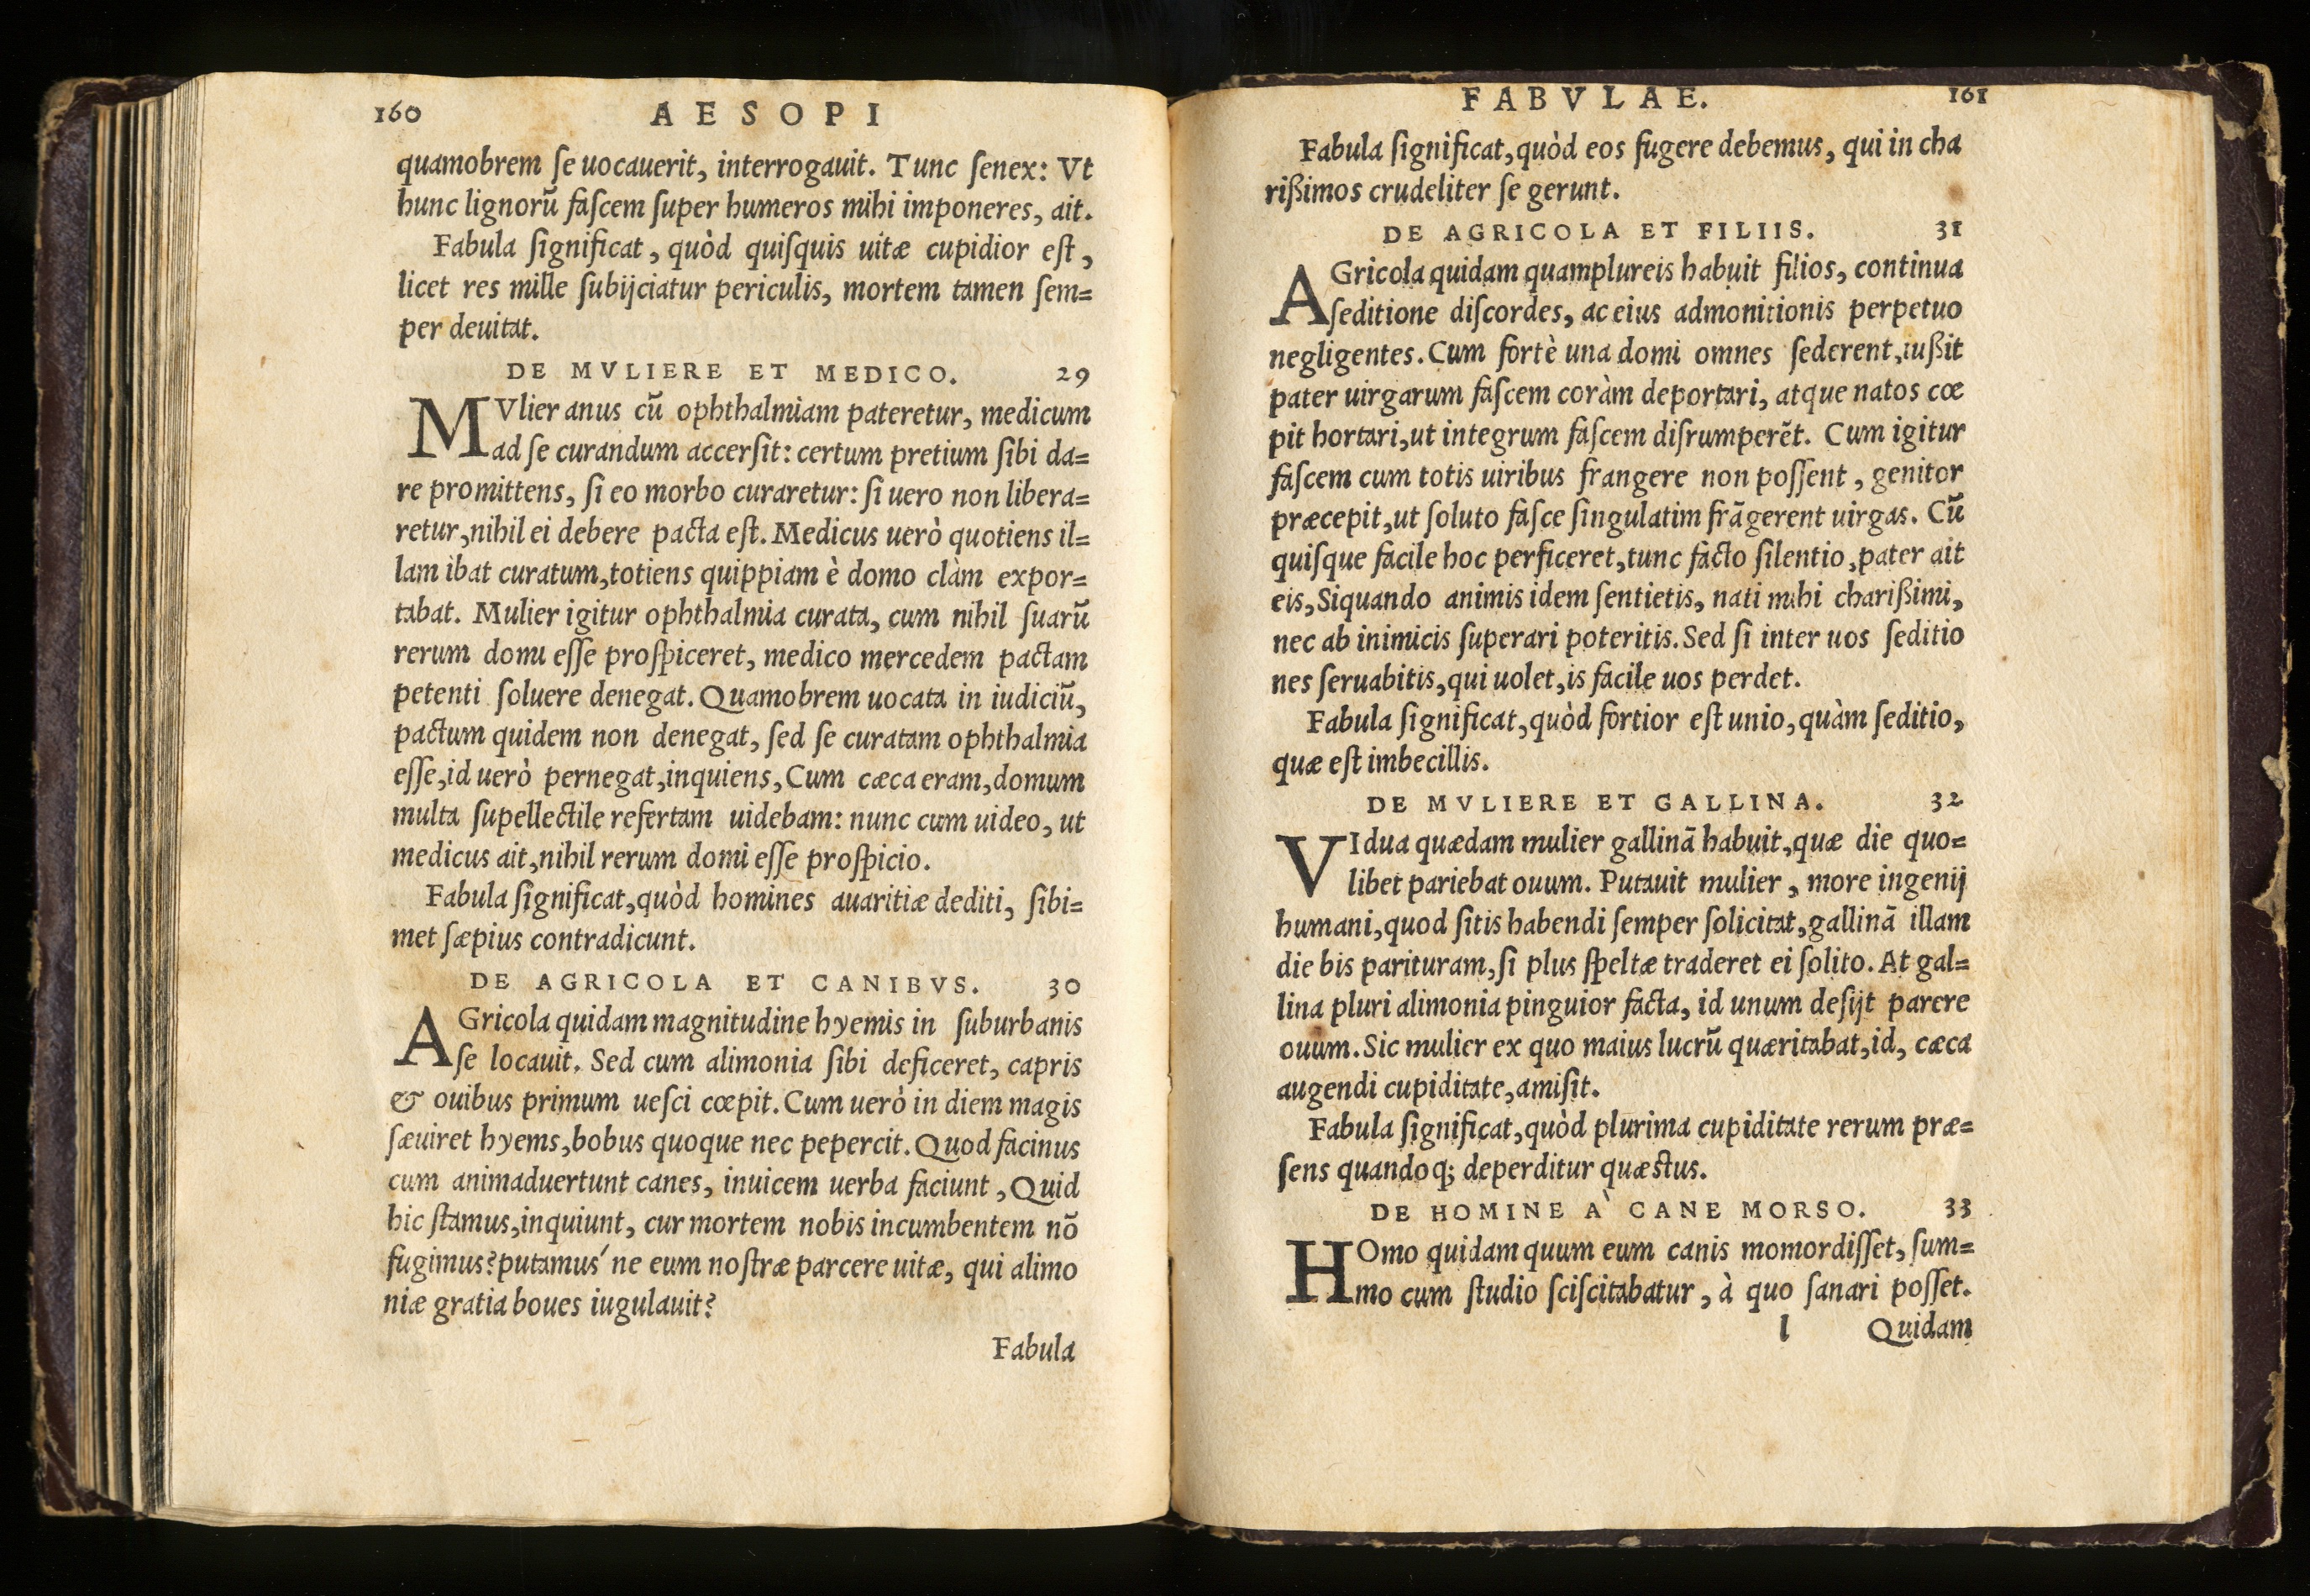 160 AESOPI
quamobrem ſe uocauerit, interrogauit. Tunc ſenex: Vt
hunc lignorū faſcem ſuper humeros mihi imponeres, ait.
Fabula ſignificat, quòd quiſquis uitæ cupidior eſt,
licet res mille ſubijciatur periculis, mortem tamen ſem=
per deuitat.
DE MVLIERE ET MEDICO. 29
MVlier anus cū ophthalmiam pateretur, medicum
ad ſe curandum accerſit: certum pretium ſibi da=
re promittens, ſi eo morbo curaretur: ſi uero non libera=
retur, nihil ei debere pacta eſt. Medicus uerò quotiens il=
lam ibat curatum, totiens quippiam è domo clàm expor=
tabat. Mulier igitur ophthalmia curata, cum nihil ſuarū
rerum domi eſſe proſpiceret, medico mercedem pactam
petenti ſoluere denegat. Quamobrem uocata in iudiciū,
pactum quidem non denegat, ſed ſe curatam ophthalmia
eſſe, id uerò pernegat, inquiens, Cum cæca eram, domum
multa ſupellectile refertam uidebam: nunc cum uideo, ut
medicus ait, nihil rerum domi eſſe proſpicio.
Fabula ſignificat, quòd homines auaritiæ dediti, ſibi=
met ſæpius contradicunt.
DE AGRICOLA ET CANIBVS. 30
AGricola quidam magnitudine hyemis in ſuburbanis
ſe locauit. Sed cum alimonia ſibi deficeret, capris
& ouibus primum ueſci cœpit. Cum uerò in diem magis
ſæuiret hyems, bobus quoque nec pepercit. Quod facinus
cum animaduertunt canes, inuicem uerba faciunt, Quid
hic ſtamus, inquiunt, cur mortem nobis incumbentem nō
fugimus? putamus´ne eum noſtræ parcere uitæ, qui alimo
niæ gratia boues iugulauit?
Fabula
FABVLAE. 161
Fabula ſignificat, quòd eos fugere debemus, qui in cha
rißimos crudeliter ſe gerunt.
DE AGRICOLA ET FILIIS. 31
AGricola quidam quamplureis habuit filios, continua
ſeditione diſcordes, ac eius admonitionis perpetuo
negligentes. Cum fortè una domi omnes ſederent, iußit
pater uirgarum faſcem coràm deportari, atque natos cœ
pit hortari, ut integrum faſcem diſrumperēt. Cum igitur
faſcem cum totis uiribus frangere non poſſent, genitor
præcepit, ut ſoluto faſce ſingulatim frāgerent uirgas. Cū
quiſque facile hoc perficeret, tunc facto ſilentio, pater ait
eis, Siquando animis idem ſentietis, nati mihi charißimi,
nec ab inimicis ſuperari poteritis. Sed ſi inter uos ſeditio
nes ſeruabitis, qui uolet, is facile uos perdet.
Fabula ſignificat, quòd fortior eſt unio, quàm ſeditio,
quæ eſt imbecillis.
DE MVLIERE ET GALLINA. 32
VIdua quædam mulier gallinā habuit, quæ die quo=
libet pariebat ouum. Putauit mulier, more ingenij
humani, quod ſitis habendi ſemper ſolicitat, gallinā illam
die bis parituram, ſi plus ſpeltæ traderet ei ſolito. At gal=
lina pluri alimonia pinguior facta, id unum deſijt parere
ouum. Sic mulier ex quo maius lucrū quæritabat, id, cæca
augendi cupiditate, amiſit.
Fabula ſignificat, quòd plurima cupiditate rerum præ=
ſens quandoq; deperditur quæſtus.
DE HOMINE À CANE MORSO. 33
HOmo quidam quum eum canis momordiſſet, ſum=
mo cum ſtudio ſciſcitabatur, à quo ſanari poſſet.
l Quidam